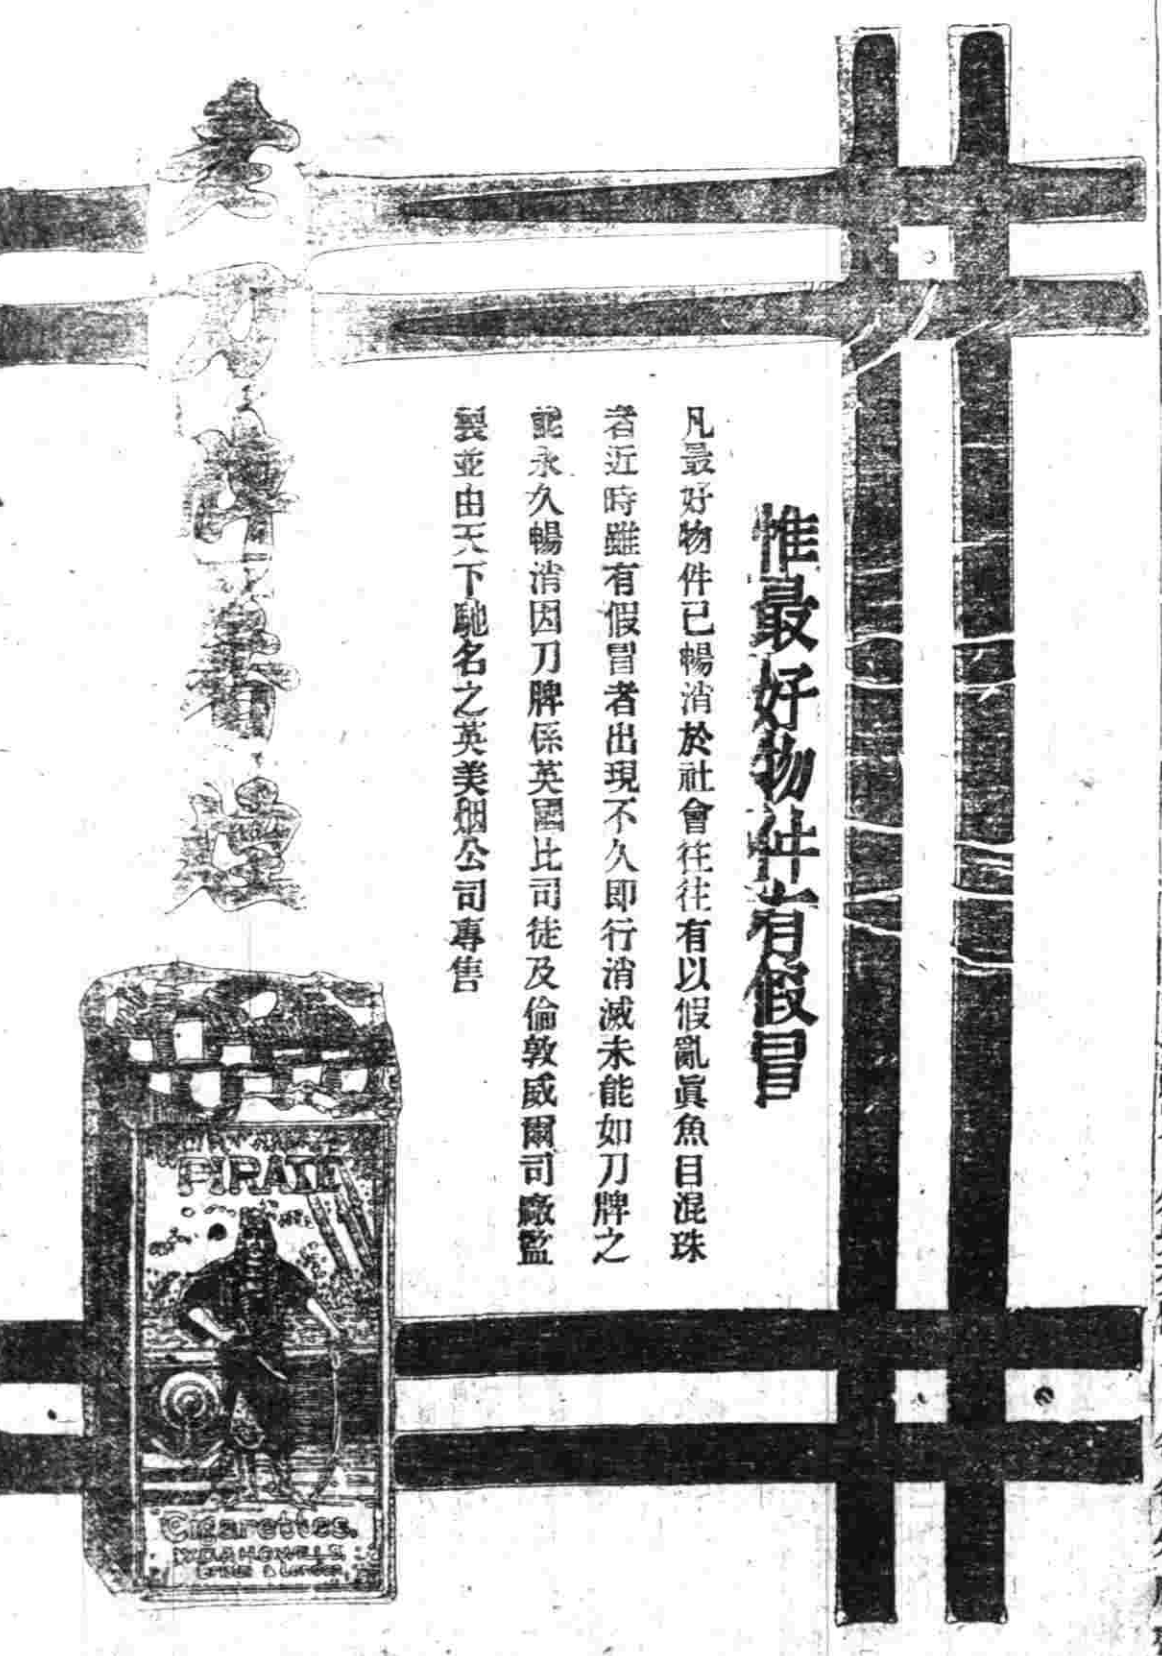 惟最好物件有假冒
凡最好物件已暢消於社會往往有以假亂眞魚目混珠
者近時雖有假冒者出現不久即行消滅未能如刀牌之
能永久暢消因刀牌係英國比司徒及倫敦威爾司廠監
製並由天下馳名之英美烟公司專售
老刀牌香煙
PIRATE
Cigarettes.
W.D.& H.O.WILLS,
Bristol & London.